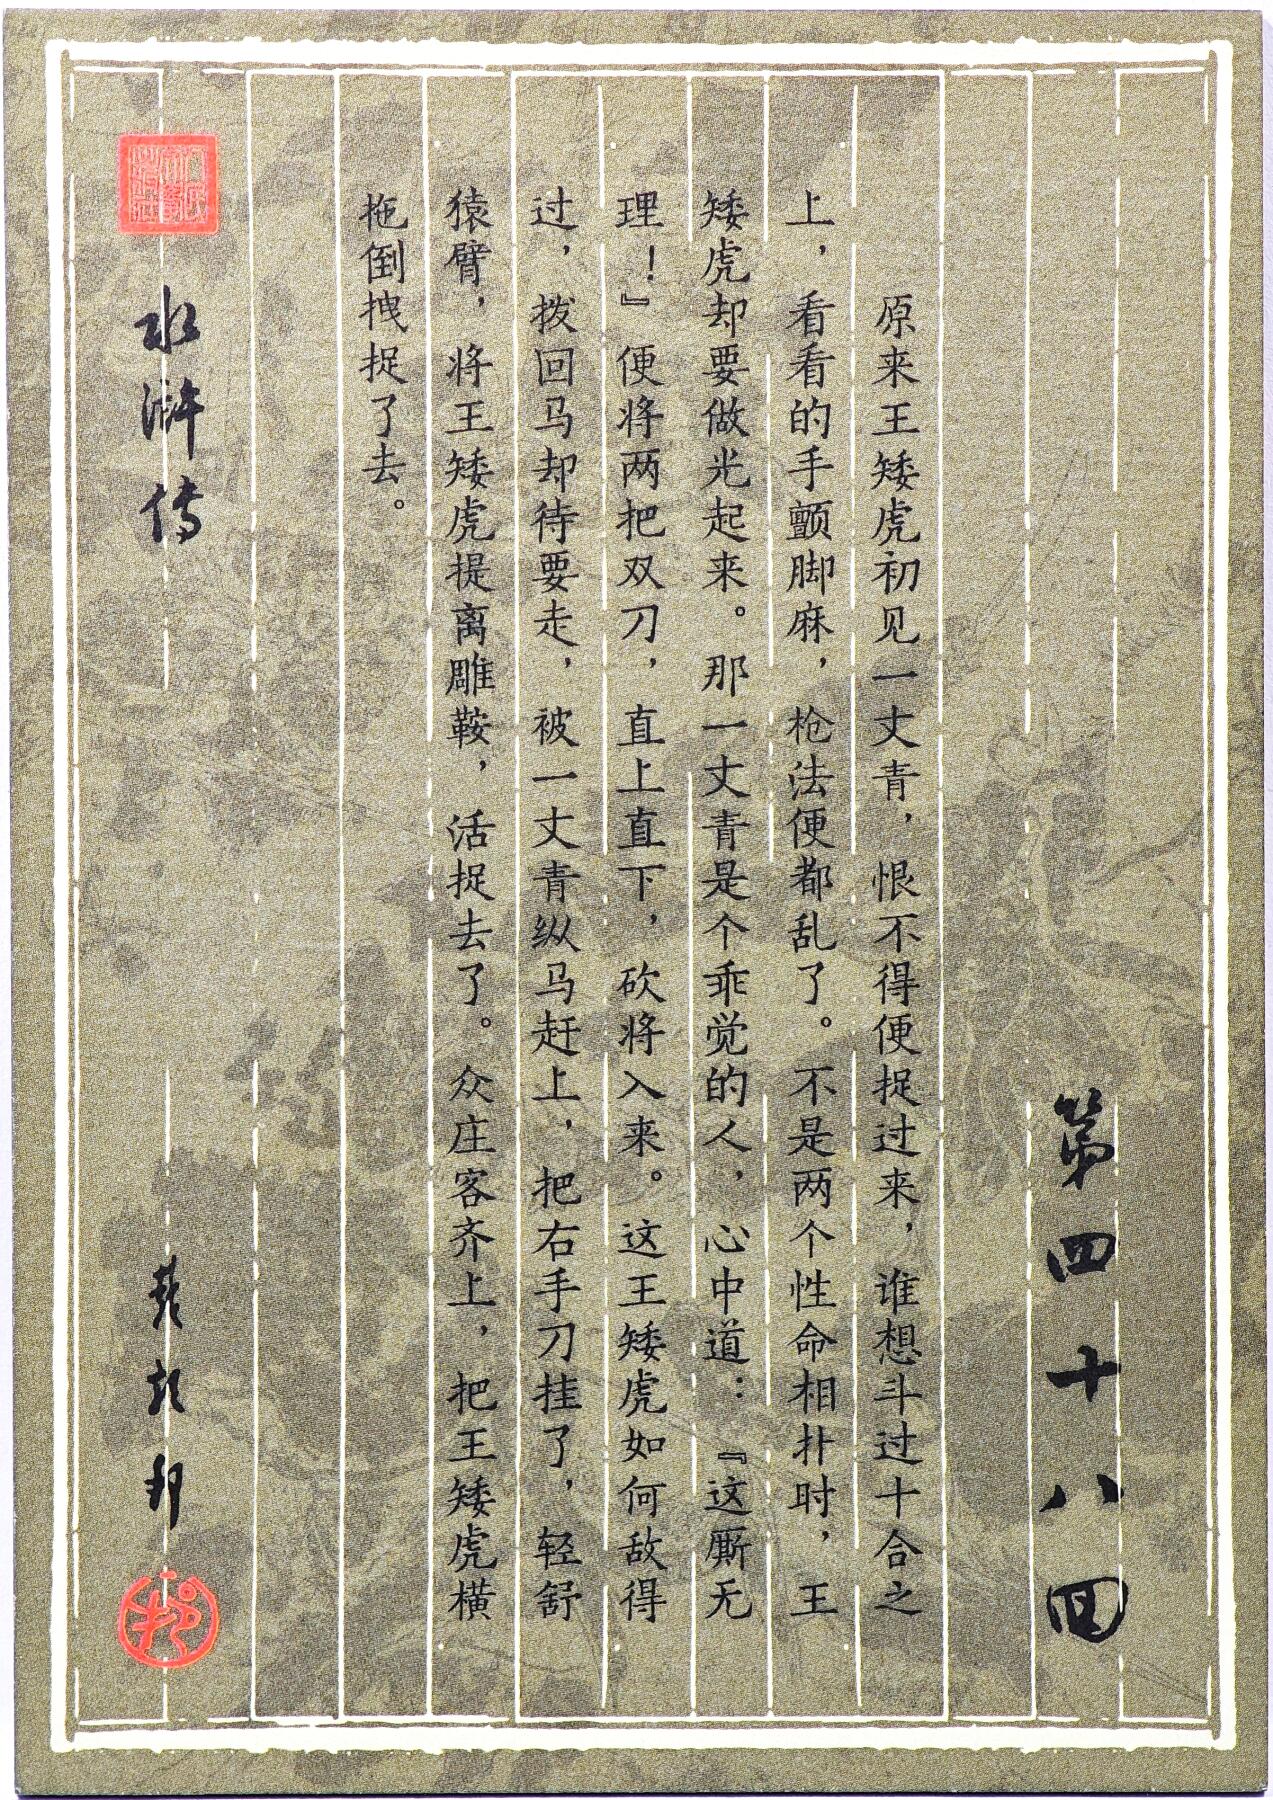 第四十八回
原来王矮虎初见一丈青，恨不得便捉过来，谁想斗过十合之
上，看看的手颤脚麻，枪法便都乱了。不是两个性命相扑时，王
矮虎却要做光起来。那一丈青是个乖觉的人，心中道：『这厮无
理！』便将两把双刀，直上直下，砍将入来。这王矮虎如何敌得
过，拨回马却待要走，被一丈青纵马赶上，把右手刀挂了，轻舒
猿臂，将王矮虎提离雕鞍，活捉去了。众庄客齐上，把王矮虎横
拖倒拽捉了去。
水浒传